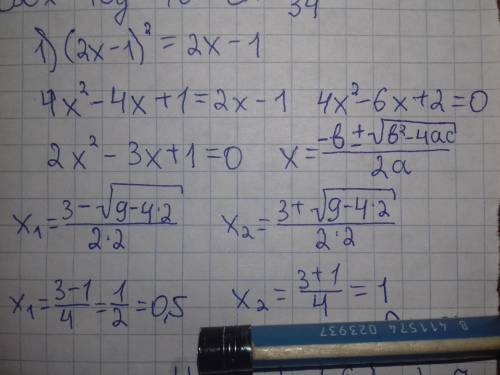 34
1) (2x-1)² = 2x-1
4x²-4x+1=2x-1 4x²-6x+2=0
2x²-3x+1=0 x=(-b±√(b²-4ac))/2a
x₁=(3-√(9-4·2))/(2·2) x₂=(3+√(9-4·2))/(2·2)
x₁=(3-1)/4=1/2=0,5 x₂=(3+1)/4=1
8 411574 023937